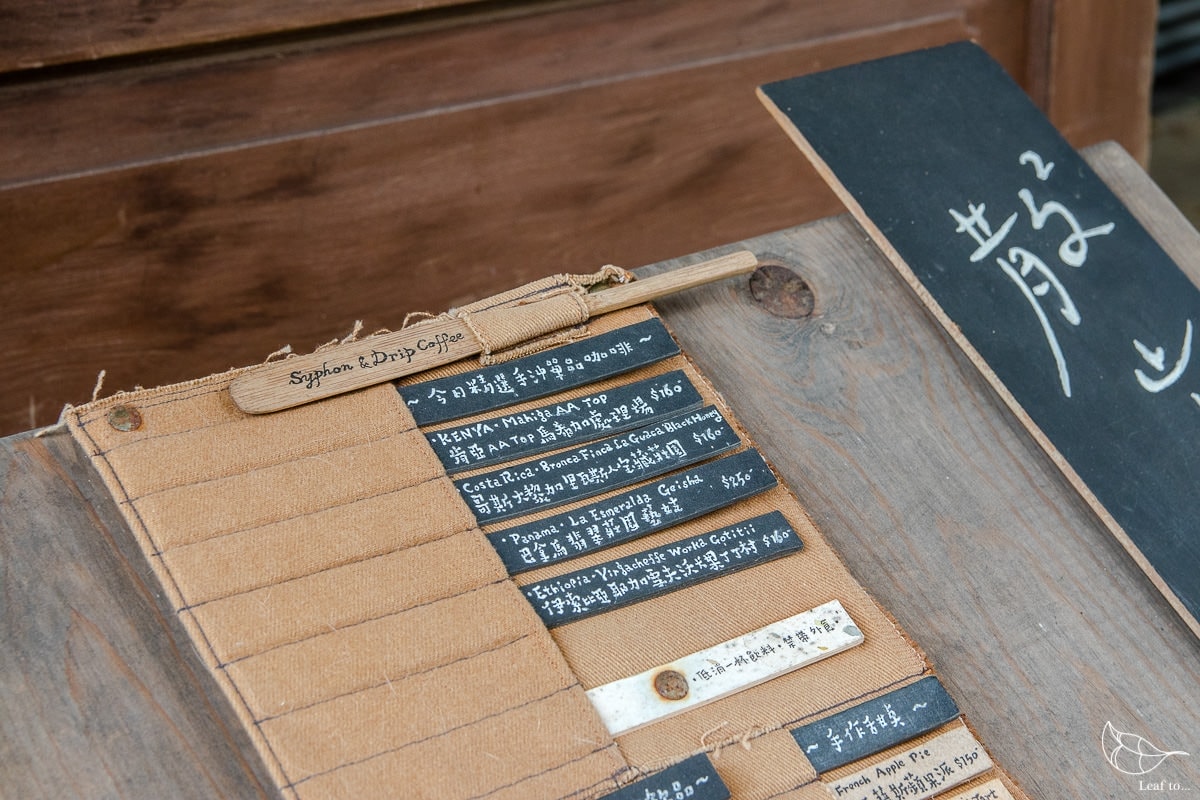 Syphon & Drip Coffee
~ 今日精選手沖單品咖啡 ~
·KENYA·Mahiga AA TOP
肯亞AA TOP 馬希加處理場 $160
Costa Rica·Bronca Finca La Guaca Black Honey
哥斯大黎加 $160
·Panama·La Esmeralda Geisha
巴拿馬 翡翠莊園 藝妓 $250
·Ethiopia·Yirgacheffe Worka Gotitii
伊索比亞 耶加雪夫 沃卡 果丁丁村 $160
·低消一杯飲料·禁帶外食·
~ 手作甜點 ~
French Apple Pie
蘋果派 $150
飲品 ~
散
Leaf to...